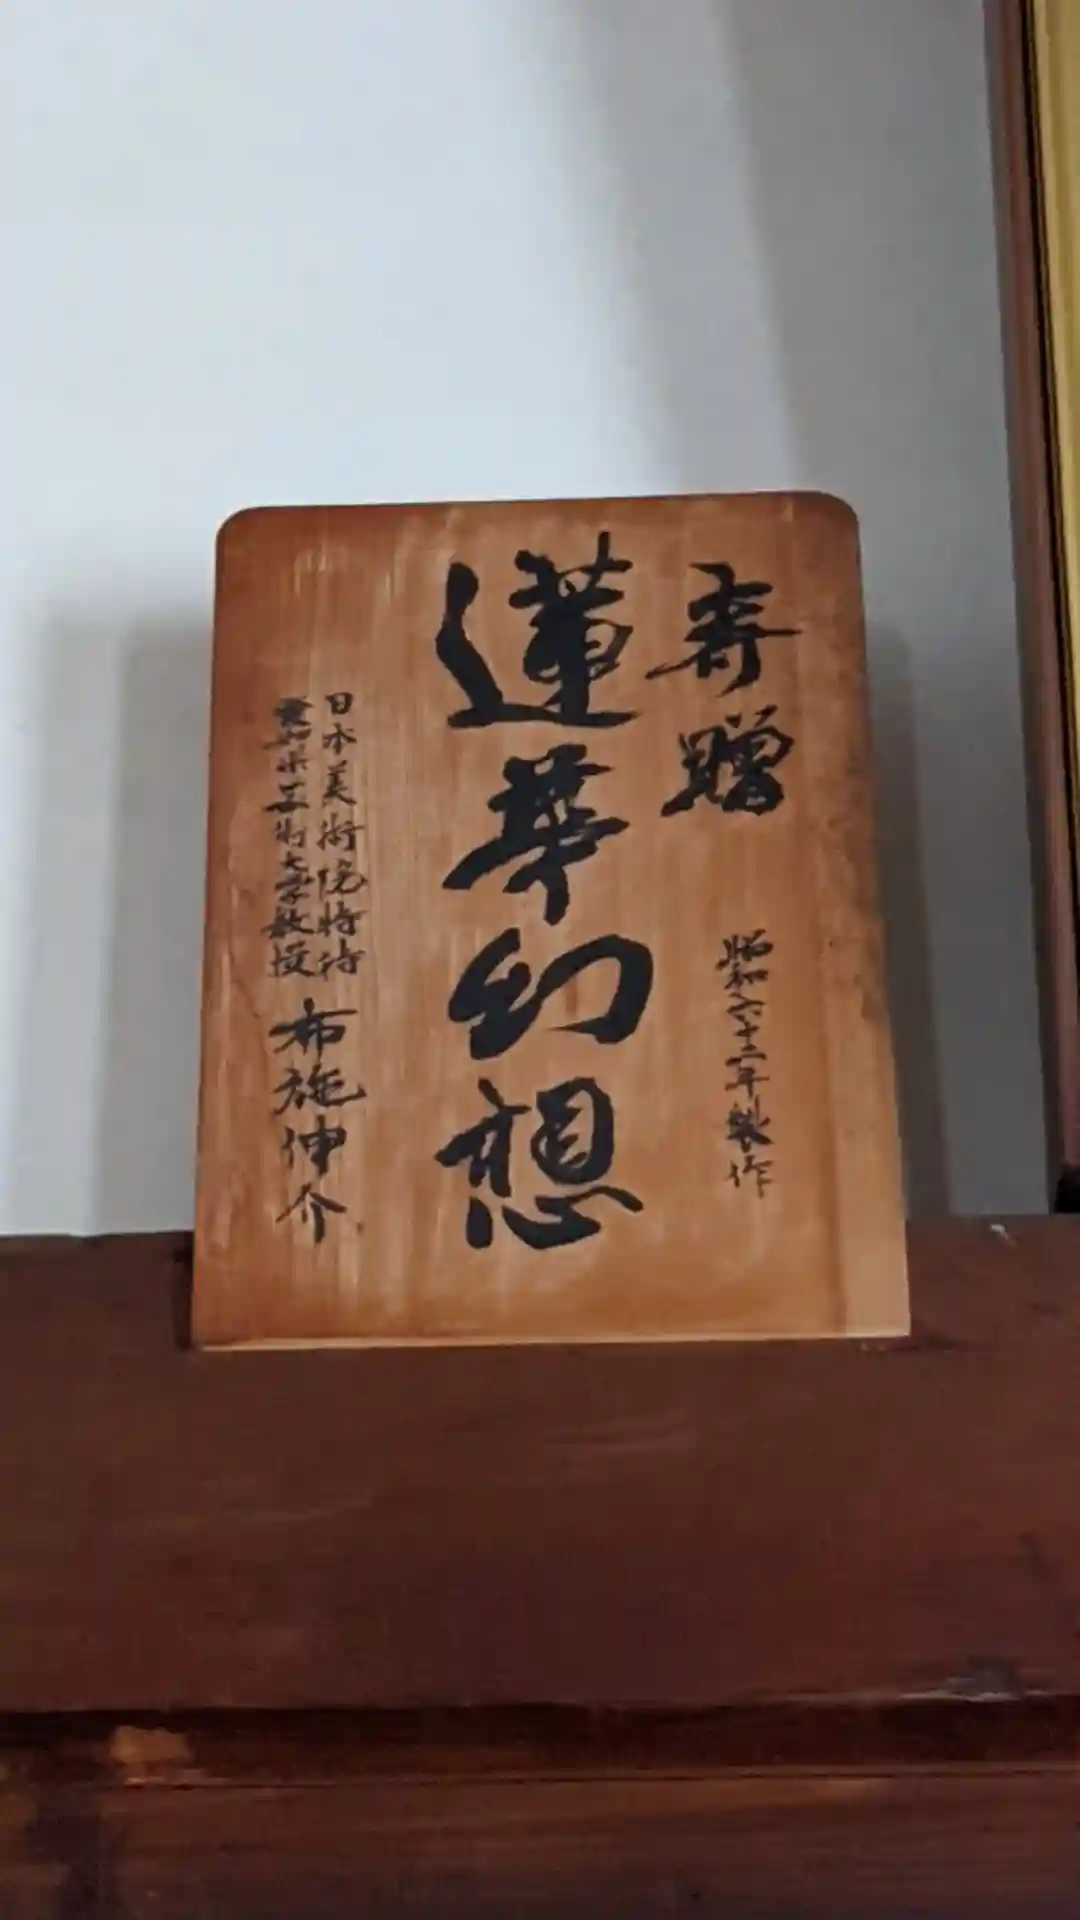 寄贈
昭和六十二年製作
蓮華幻想
日本美術院特待
愛知県立芸術大学教授
布施伸介